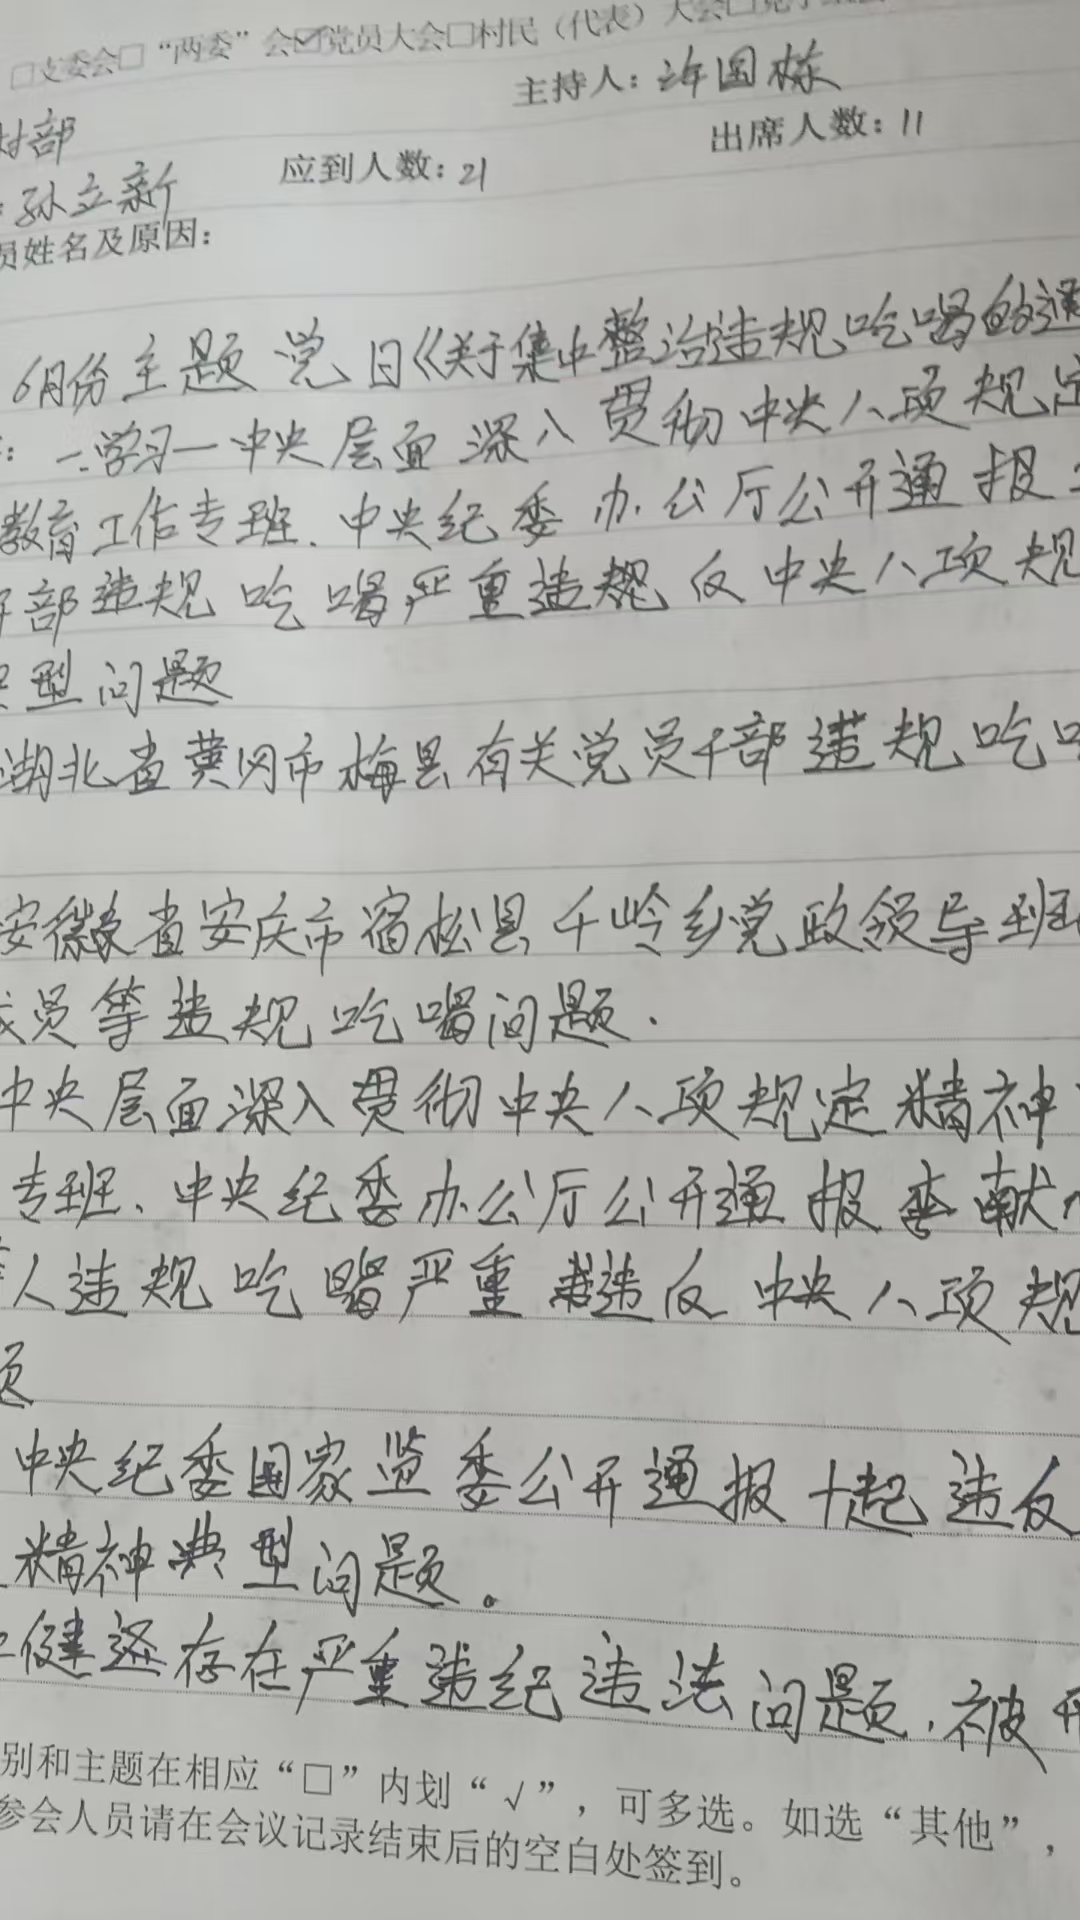 □支委会□“两委”会☑党员大会□村民（代表）大会□
主持人：许国栋
村部
出席人数：11
孙立新 应到人数：21
员姓名及原因：
6月份主题党日《关于集中整治违规吃喝的通
：一.学习一中央层面深入贯彻中央八项规定
教育工作专班.中央纪委办公厅公开通报
部违规吃喝严重违规反中央八项规
型问题
湖北省黄冈市梅县有关党员干部违规吃
安徽省安庆市宿松县千岭乡党政领导班
成员等违规吃喝问题.
中央层面深入贯彻中央八项规定精神
专班.中央纪委办公厅公开通报李献
人违规吃喝严重违反中央八项规
页
中央纪委国家监委公开通报十起违反
精神典型问题。
健还存在严重违纪违法问题.被开
别和主题在相应“□”内划“√”，可多选。如选“其他”，
参会人员请在会议记录结束后的空白处签到。